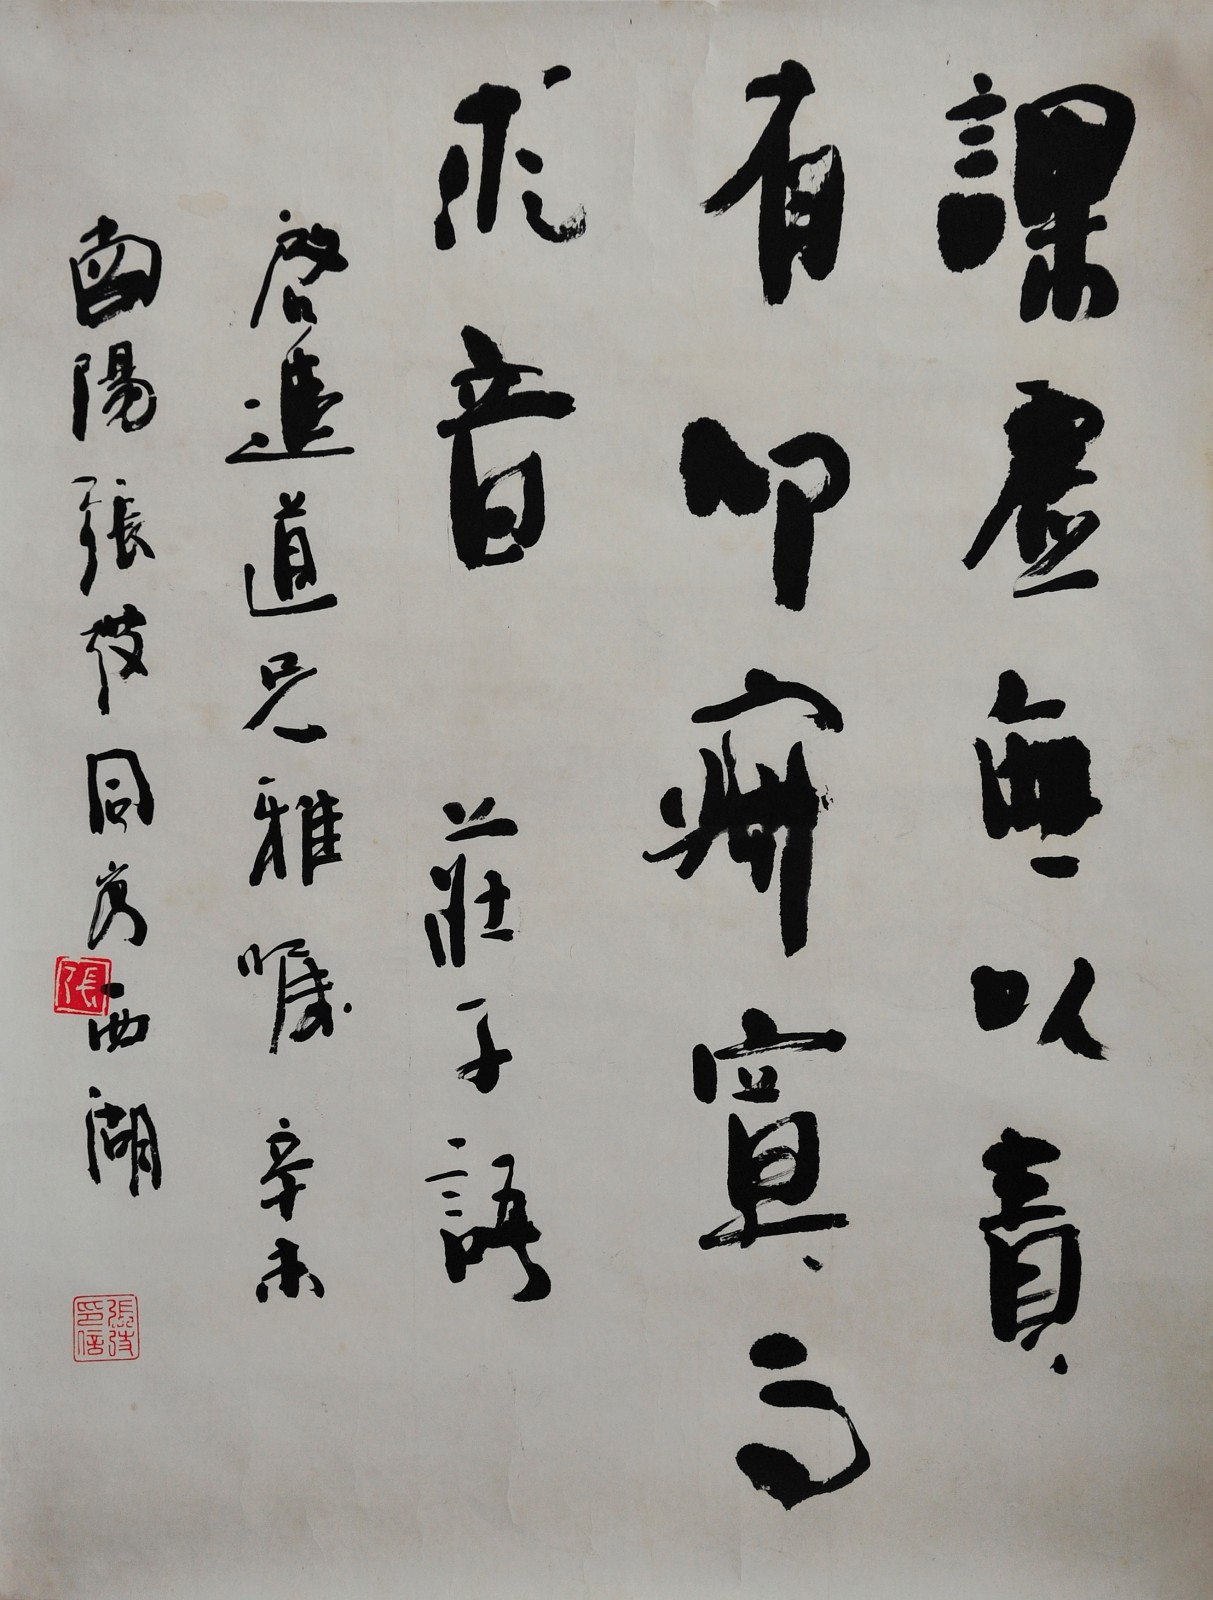 課虛無以責
有叩寂寞而
求音 莊子語
啓進道兄雅嘱 辛未
南陽張 同客西湖
張
張 印信